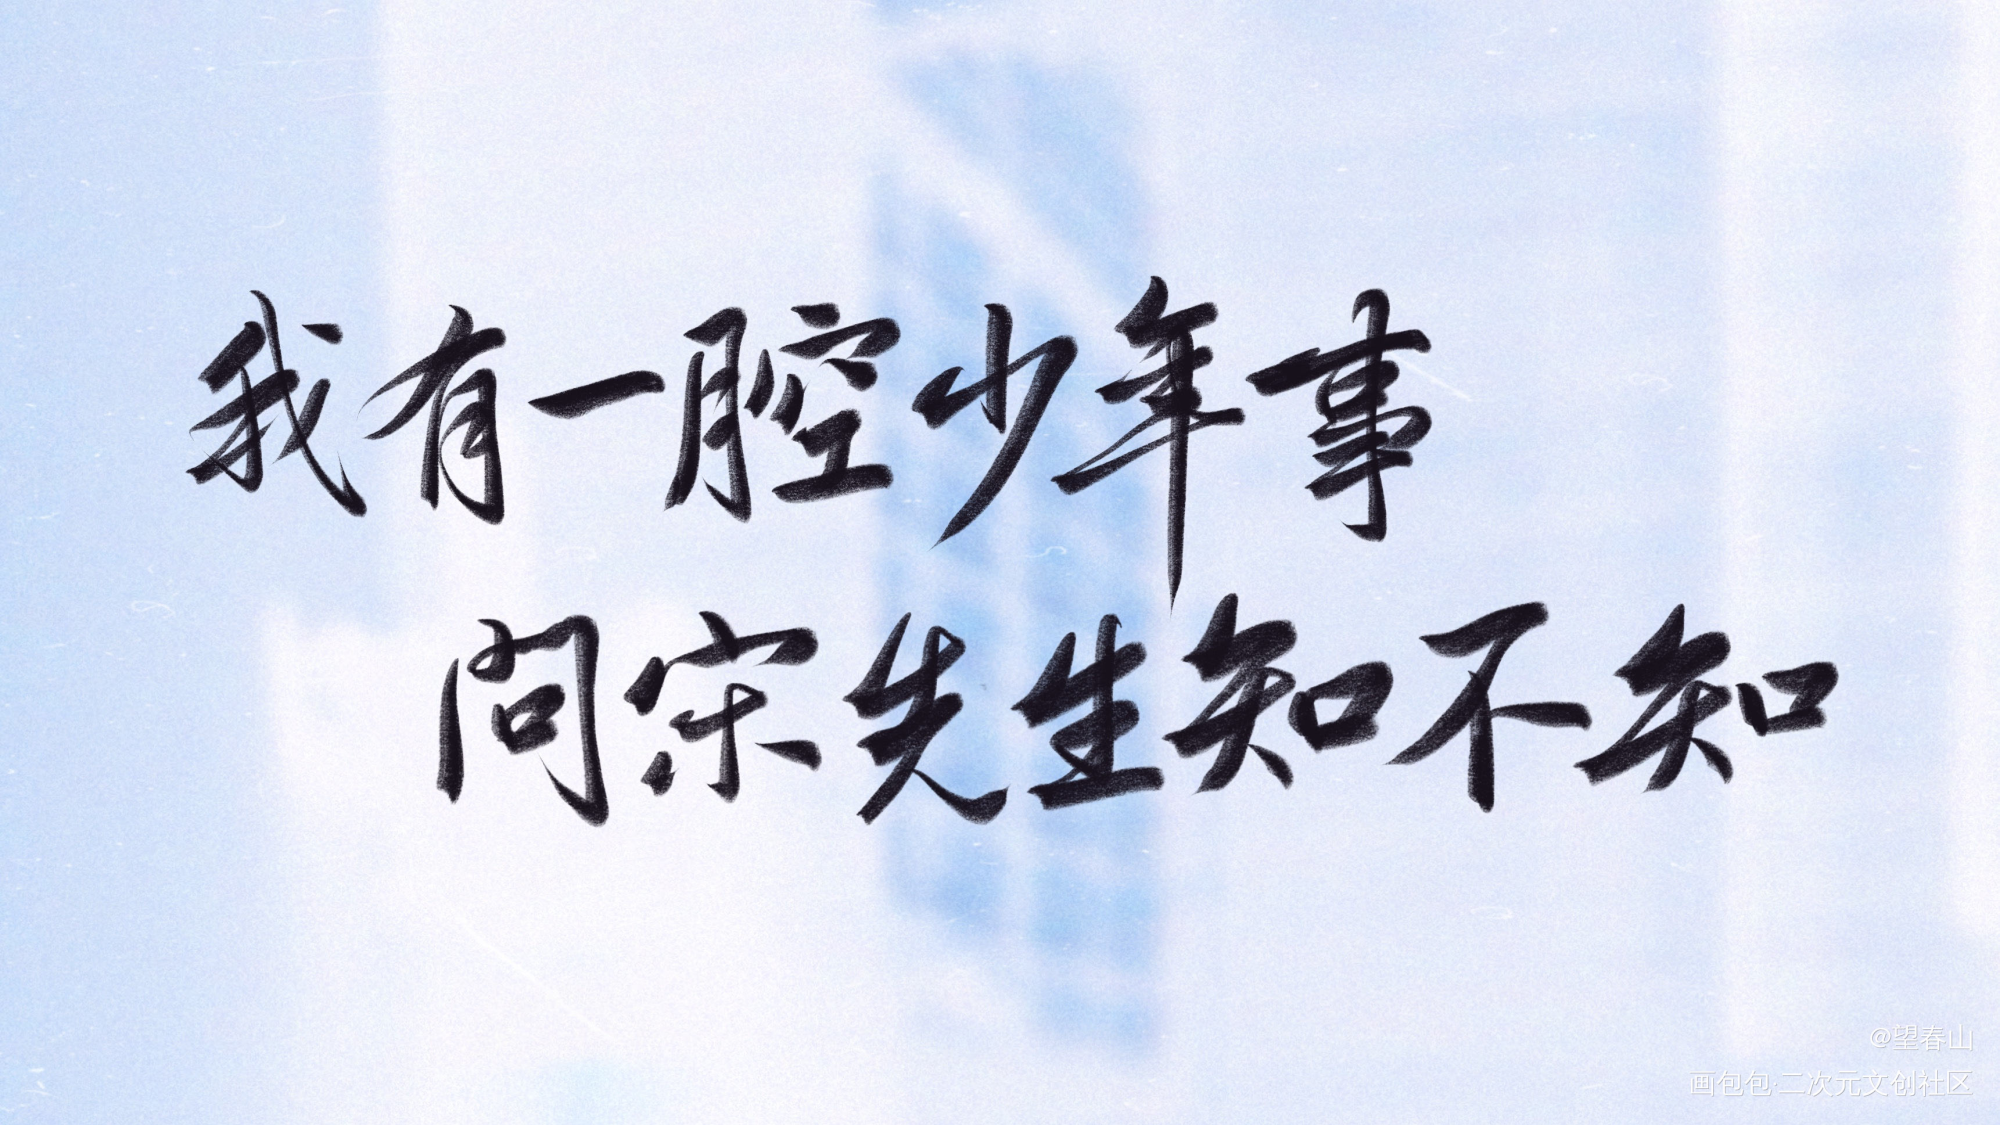 我有一腔少年事
问宋先生知不知
@望春山
画包包·二次元文创社区